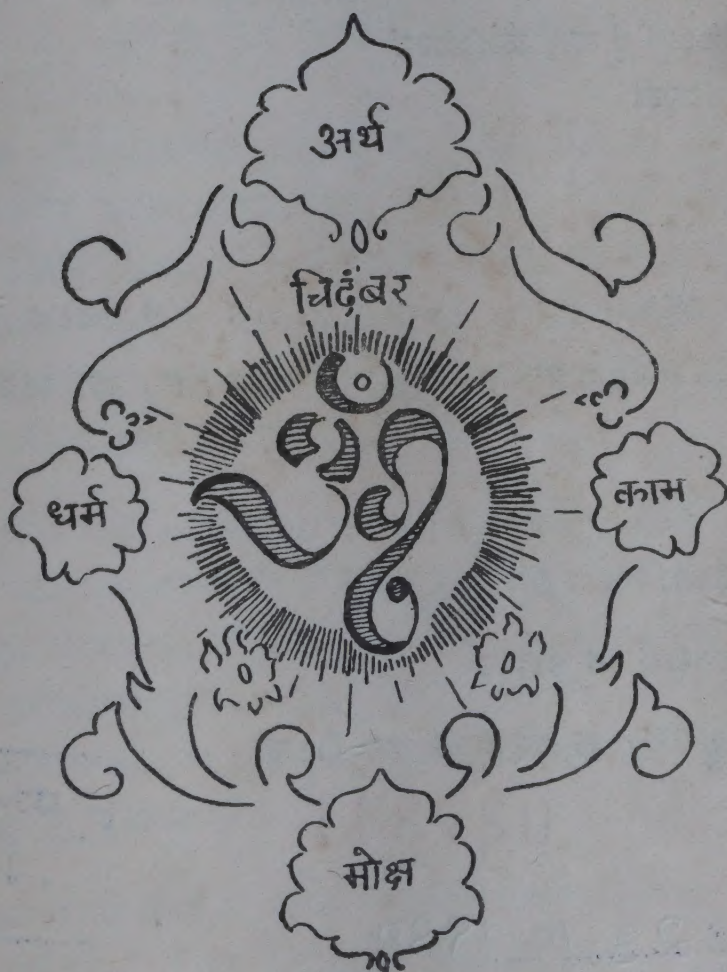 अर्थ
चिदंबर
ॐ
धर्म
काम
मोक्ष